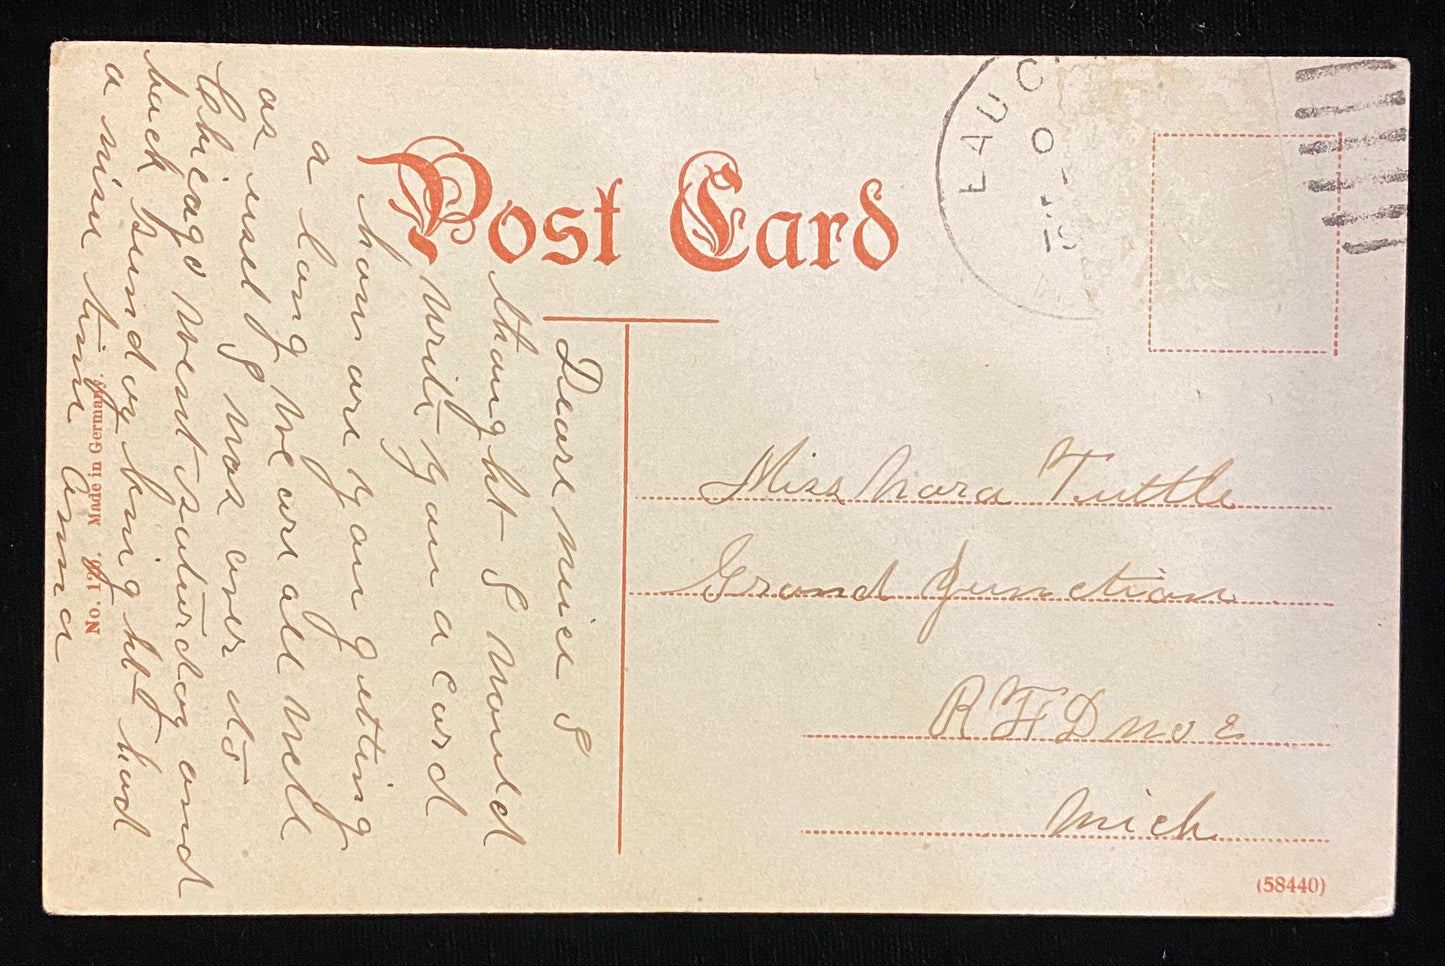 Post Card
EAU C
Deare niece I
thought I would
write you a card
how are you getting
a long we are all well
as usel I was over to
Chicago went saturday and
back sunday being ht I had
a nise time Anna
Miss Nora Tuttle
Grand Junction
R F D no 2
Mich
No. 126. Made in Germany.
(58440)